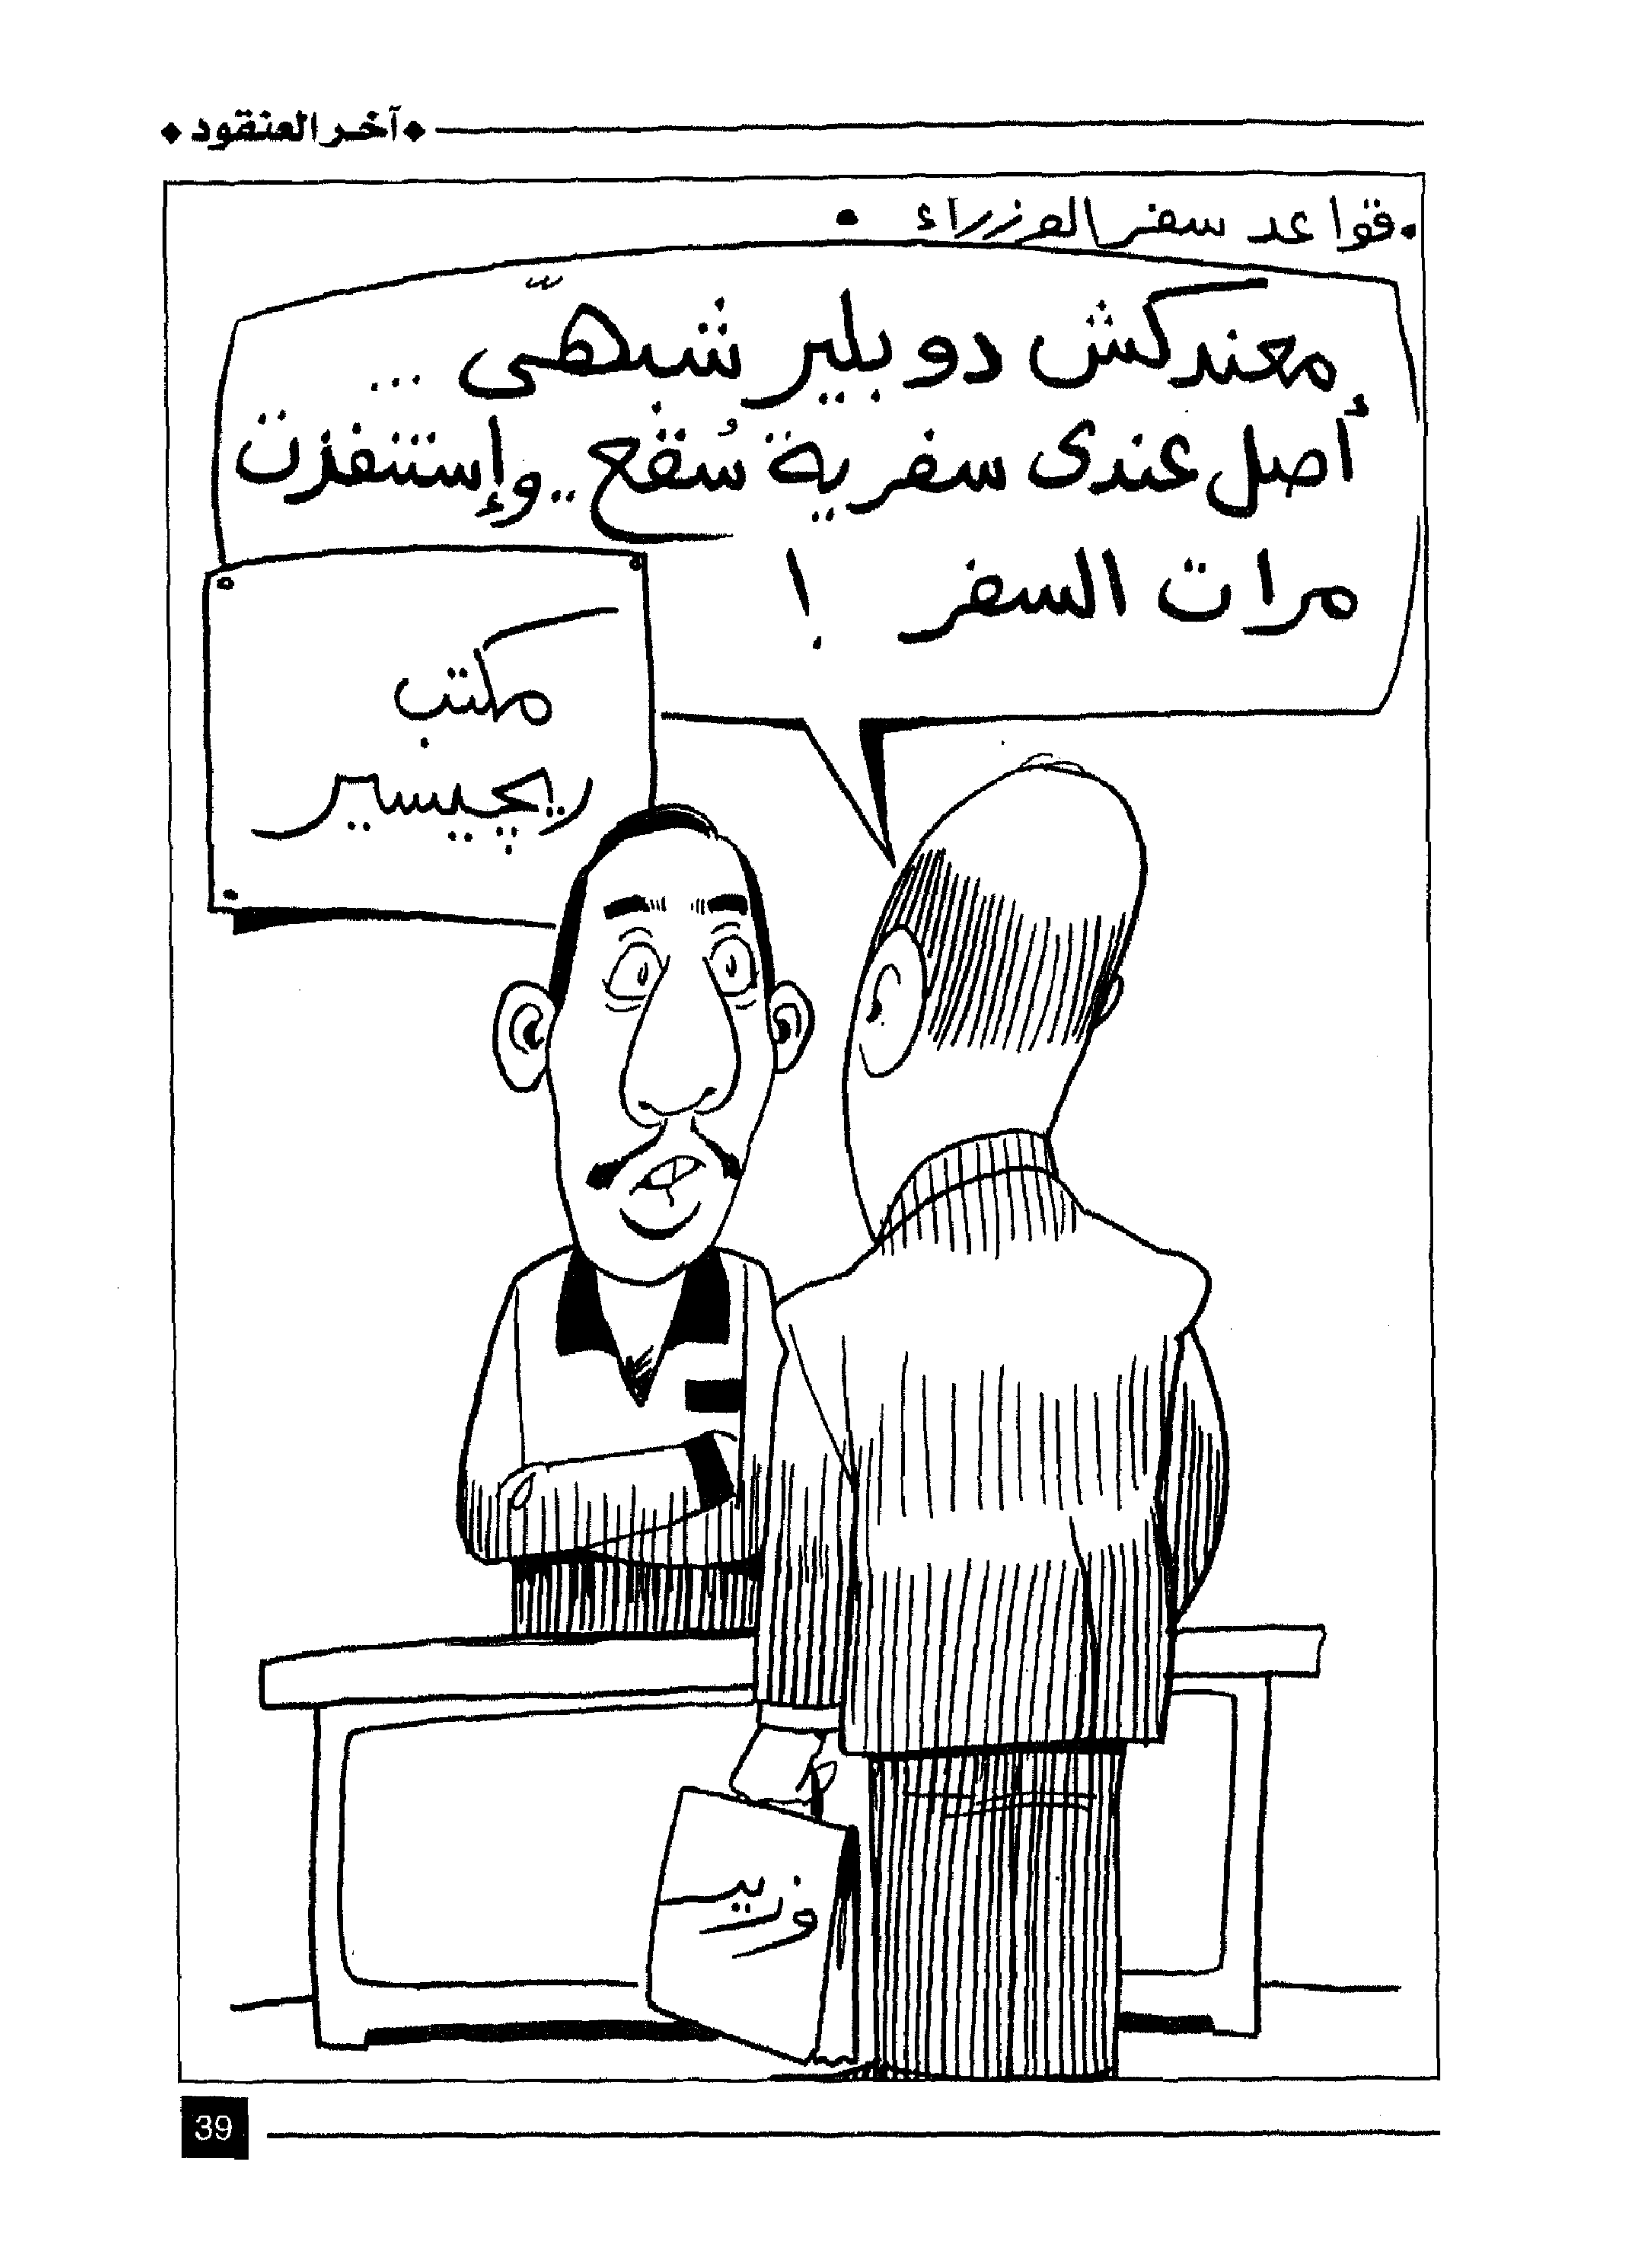 آخر العنقود
• قواعد سفر الوزراء •
معندكش دوبلير شبهى ...
أصل عندى سفرية سُقع .. وإستنفزت
مرات السفر !
مكتب
ريچيسير
وزير
39